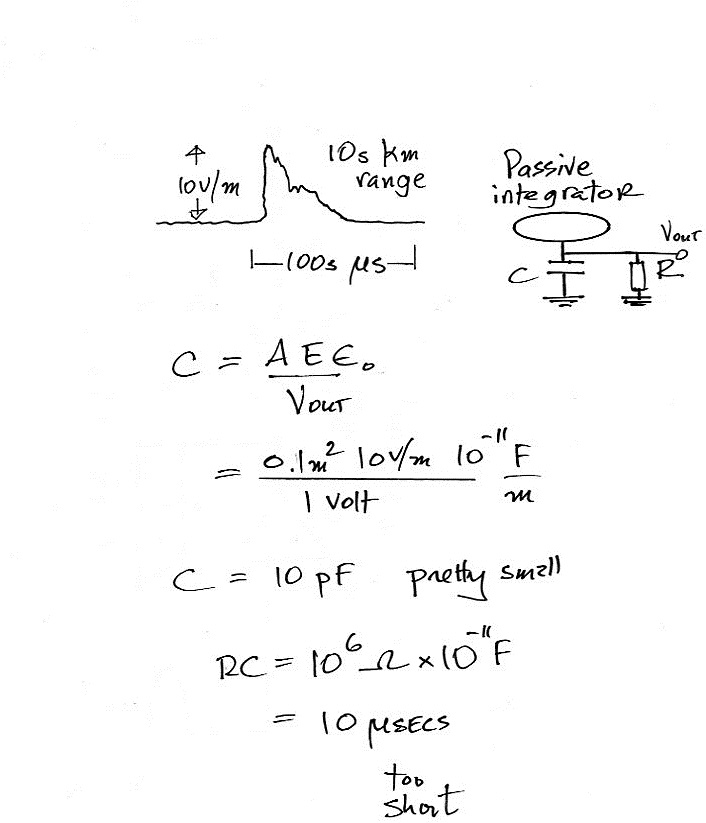 10 V/m
10s km
range
|—100s µs—|
Passive
integrator
Vout
C
R
C = A E ε₀
Vout
= 0.1m² 10V/m 10⁻¹¹ F
1 volt m
C = 10 pF pretty small
RC = 10⁶ Ω × 10⁻¹¹ F
= 10 µsecs
too
short